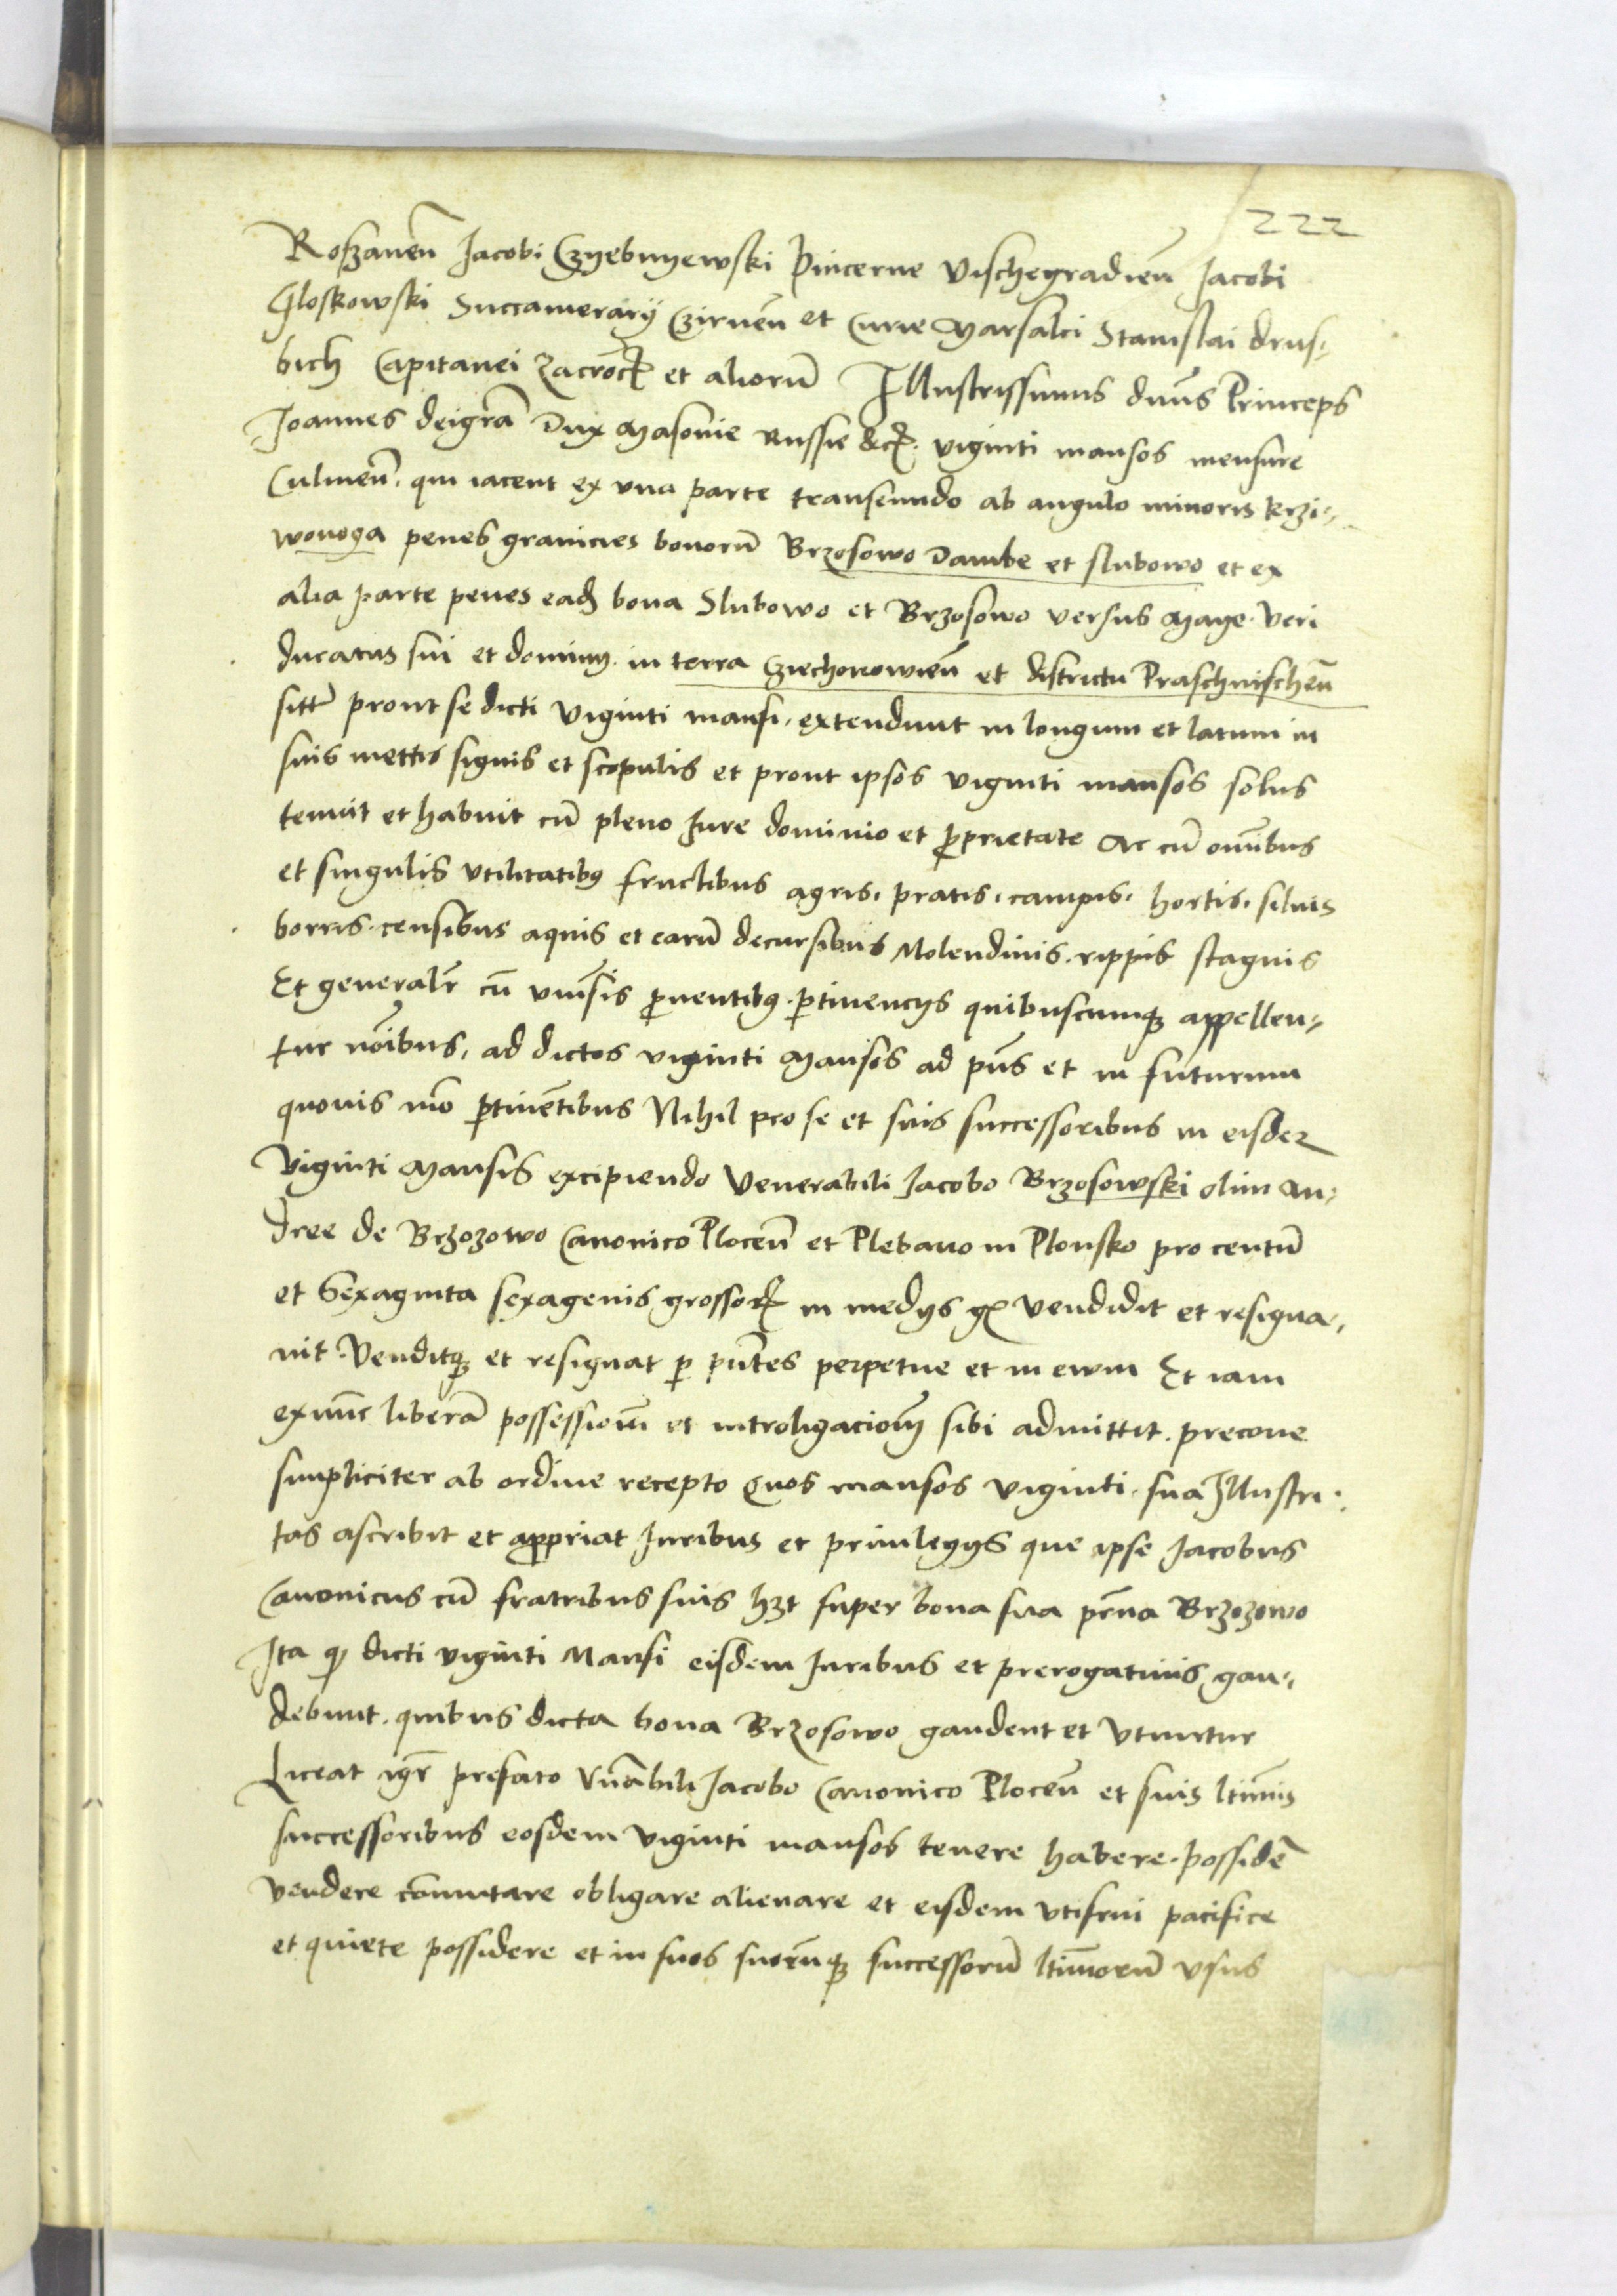 222
Roßanen̄ Jacobi Czyebnyewski Pincerne Vischegradien̄ Jacobi
Gloskowski Succamerarij Czirnen̄ et Curie Marsalci Stanislai drus-
bich Capitanei Zacrocz et aliorū Illustrissimus dnūs Princeps
Joannes deigrā Dux Masouie Russie &c. viginti mansos mensure
Culmen̄. qui iacent ex vna parte transeundo ab angulo minoris krzi-
wonoga penes granicies bonorū Brzosowo Dambe et slubowo et ex
alia parte penes ead bona Slubowo et Brzosowo versus Mage. veri
ducatus sui et dominij. in terra Cziechonowien̄ et districtu Praschnischen̄
sitt prout se dicti viginti mansi. extendunt in longum et latum in
suis mettis signis et scopulis et prout ipsos viginti mansos solus
tenuit et habuit cū pleno Jure dominio et proprietate Ac cū omībus
et singulis vtilitatibꝫ fructibus agris. pratis. campis. hortis. siluis
borris. censibus aquis et earū decursibus Molendinis. rippis stagnis
Et generalr cū vniūsis prouentibꝫ. ptinencijs quibuscumqꝫ appellen-
tur noībus. ad dictos viginti Mansos ad pn̄s et in futurum
quouis mō ptinētibus Nihil pro se et suis successoribus in eisdeꝫ
Viginti Mansis excipiendo Venerabili Jacobo Brzosowski olim An-
dree de Brzozowo Canonico Plocen̄ et Plebano in Plonsko pro centū
et Sexaginta sexagenis grossoꝝ in medijs gr vendidit et resigna-
uit. Venditqꝫ et resignat p pn̄tes perpetue et in ewm Et iam
exnūc liberā possessionē et introligacionē sibi admittit. precone
simpliciter ab ordine recepto Quos mansos viginti. sua Illustri-
tas ascribit et appropriat Juribus et priuilegijs que ipse Jacobus
Canonicus cū fratribus suis hꝫt super bona sua prn̄a Brzozowo
Ita qꝫ dicti viginti Mansi eisdem Juribus et prerogatiuis gau-
debunt. quibus dicta bona Brzosowo gaudent et Vtuntur
Liceat igr prefato Vnābili Jacobo Canonico Plocen̄ et suis ltimīs
successoribus eosdem viginti mansos tenere habere. possidē
vendere cōmutare obligare alienare et eisdem vtifrui pacifice
et quiete possidere et in suos suorūqꝫ successorū ltimorū vsus